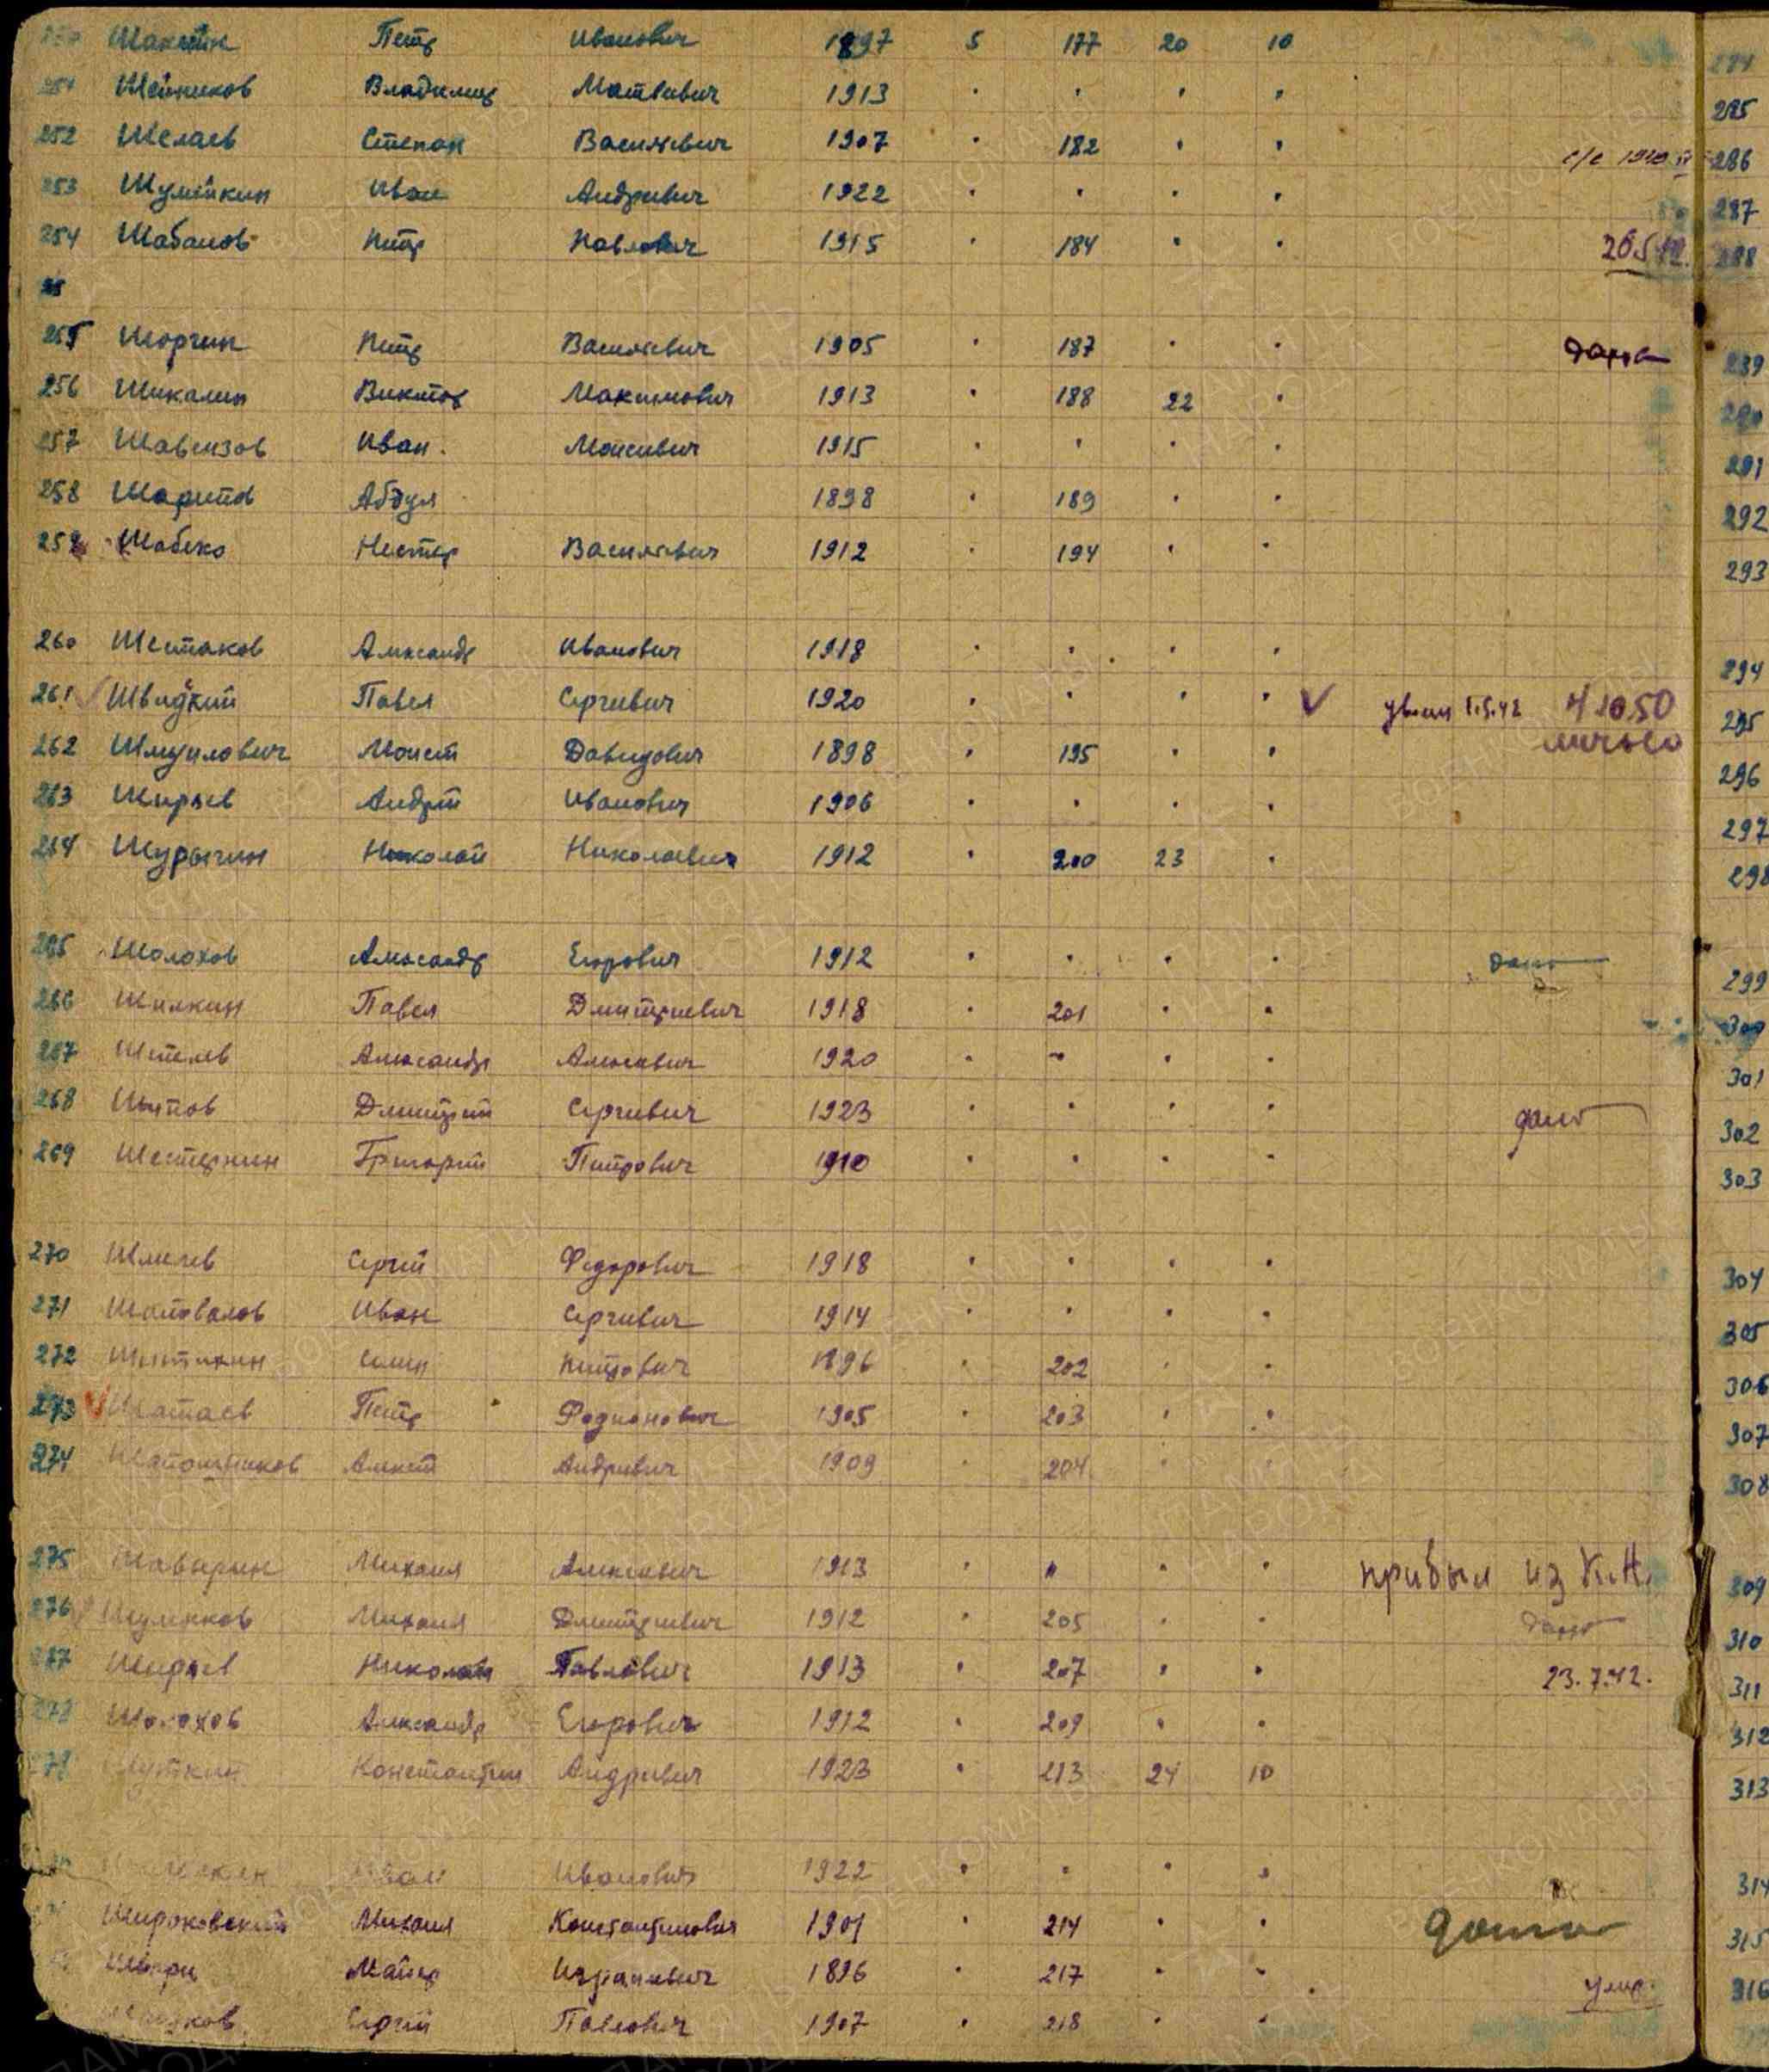 Шакетин Петр Иванович 1897 5 177 20 10
251 Шейников Владимир Матвеевич 1913 " " " "
252 Шелаев Степан Васильевич 1907 " 182 " "
253 Шумейкин Иван Андреевич 1922 " " " "
254 Шабанов Петр Павлович 1915 " 184 " " 26.5.42.
255 Шоргин Петр Васильевич 1905 " 187 " "
256 Шикалин Виктор Максимович 1913 " 188 22 "
257 Иван Моисеевич 1915 " " " "
258 Шарипов Абдул 1898 " 189 " "
259 Шабеко Нестер Васильевич 1912 " 194 " "
260 Шестаков Александр Иванович 1918 " " " "
261 Швидкий Павел Сергеевич 1920 " " " " V 1.5.42
262 Шмуилович Моисей Давидович 1898 " 195 " "
263 Ширяев Андрей Иванович 1906 " " " "
264 Шурыгин Николай Николаевич 1912 " 200 23 "
265 Шолохов Александр Егорович 1912 " " " "
266 Шилкин Павел Дмитриевич 1918 " 201 " "
267 Шепелев Александр Алексеевич 1920 " " " "
268 Шипов Дмитрий Сергеевич 1923 " " " "
269 Шестернин Григорий Петрович 1910 " " " "
270 Шмелев Сергей Федорович 1918 " " " "
271 Шаповалов Иван Сергеевич 1914 " " " "
272 Петрович 1896 " 202 " "
273 Шатаев Петр Родионович 1905 " 203 " "
274 Шапошников Алексей Андреевич 1909 " 204 " "
275 Шавырин Михаил Алексеевич 1913 " " " " прибыл из К.Н.
276 Михаил Дмитриевич 1912 " 205 " "
277 Ширяев Николай Павлович 1913 " 207 " " 23.7.42.
278 Шолохов Александр Егорович 1912 " 209 " "
279 Шуткин Константин Андреевич 1923 " 213 24 10
Иван Иванович 1922 " " " "
Широковский Михаил Константинович 1901 " 214 " "
Майер 1896 " 217 " " умер.
Сергей Павлович 1907 " 218 " "
285
286
287
288
289
290
291
292
293
294
295
296
297
298
299
300
301
302
303
304
305
306
307
308
309
310
311
312
313
314
315
316